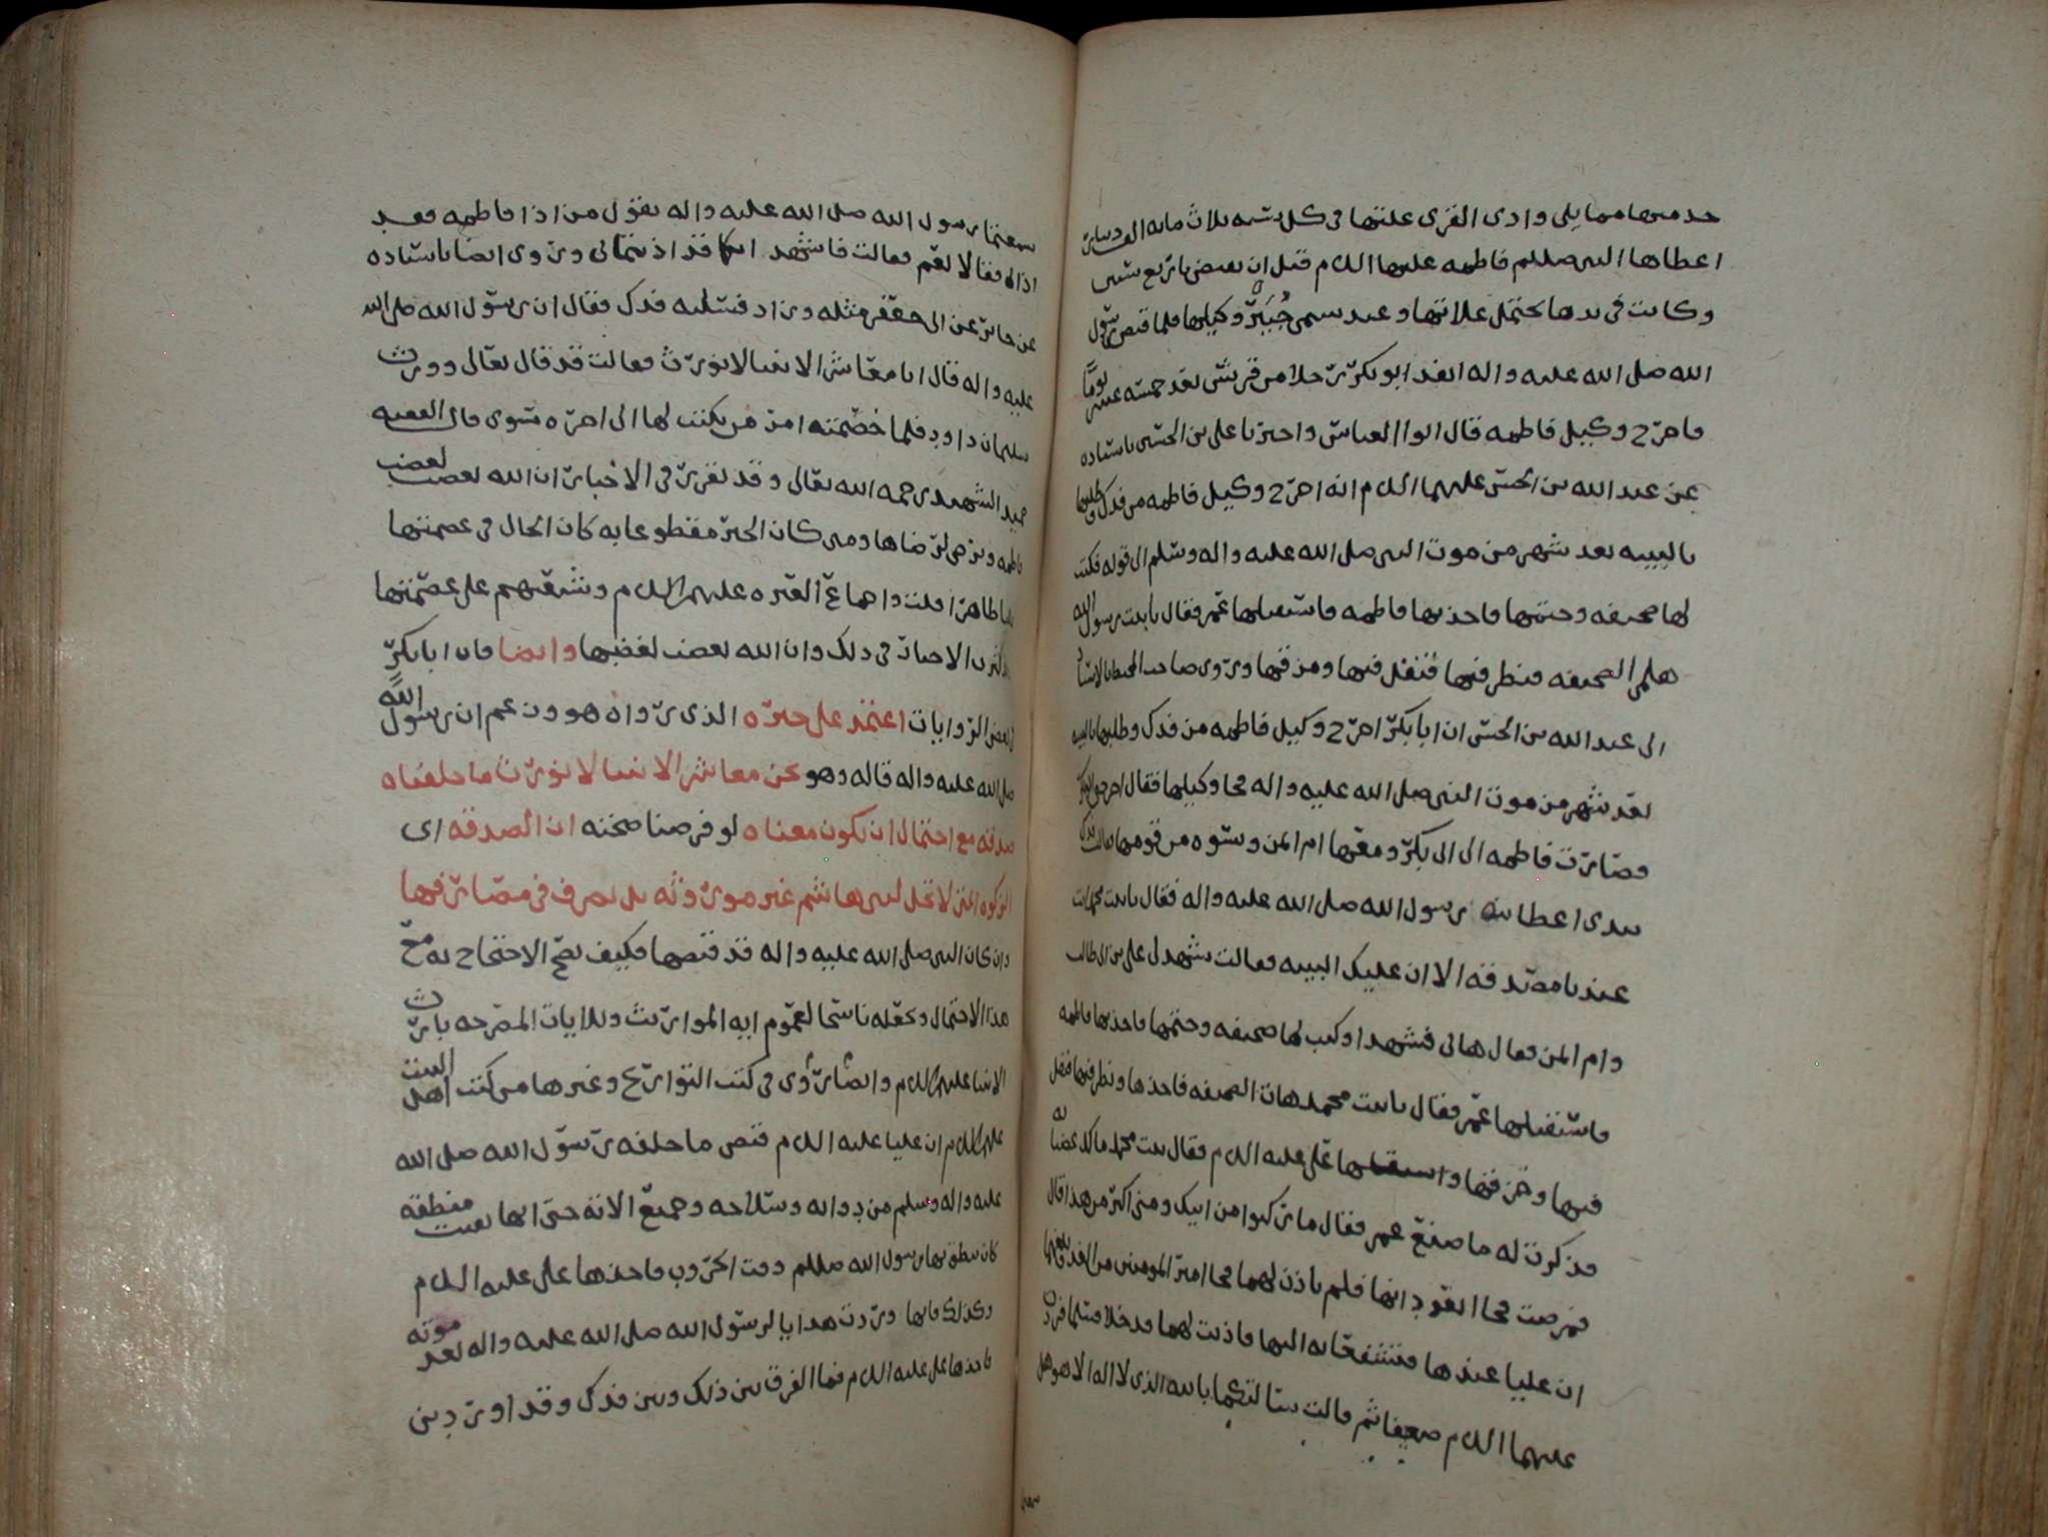 حد منها مما يلي وادى القرى غلتها في كل سنه ثلاث مايه الف دينار
اعطاها النبى صللم فاطمه عليها اللام قبل ان يقبض باربع سنين
وكانت في يدها تحتمل غلاتها وعبد سمى جُبَيرٌ وكيلها فلما قبض رسول
الله صلى الله عليه واله انفذ ابو بكر رجلا من قريش بعد خمسه عشر يوماً
فاخرج وكيل فاطمه قال ابو العباس واخبرنا على بن الحسين باسناده
عن عبد الله بن الحسن عليهما اللام انه اخرج وكيل فاطمه من فدك وطلبها
بالبينه بعد شهر من موت النبى صلى الله عليه واله وسلم الى قوله فكتب
لها صحيفه وختمها فاخذتها فاطمه فاستقبلها عمر فقال يا بنت رسول الله
هلمى الصحيفه فنظر فيها فتفل فيها ومزقها وروى صاحب المحيط بالاسناد
الى عبد الله بن الحسن ان ابا بكر اخرج وكيل فاطمه من فدك وطلبها بالبينه
بعد شهر من موت النبى صلى الله عليه واله فجا وكيلها فقال اخرجنى ابو بكر
فصارت فاطمه الى ابى بكر ومعها ام ايمن ونسوه من قومها فقالت فدك
بيدى اعطانيه رسول الله صلى الله عليه واله فقال يا بنت محمد انت
عندنا مصدقه الا ان عليك البينه فقالت يشهد لى على بن ابى طالب
وام ايمن فقال هاتى فشهدا وكتب لها صحيفه وختمها فاخذتها فاطمه
فاستقبلها عمر فقال يا بنت محمد هات الصحيفه فاخذها ونظر فيها فتفل
فيها وخرقها واستقبلها على عليه اللام فقال يا بنت محمد مالك غضبا
فذكرت له ما صنع عمر فقال ما ركبوا من ابيك ومنى اكبر من هذا قال
فمرضت فجا ايعودانها فلم ياذن لهما فجا امير المومنين من الغد
ان عليا عندها فتشفعا به اليها فاذنت لهما فدخلا فسلما فردت
عليهما اللام ضعيفا ثم قالت سالتكما بالله الذى لا اله الا هو هل
سمعتما رسول الله صلى الله عليه واله يقول من اذا فاطمه فقد
اذانى فقالا نعم فقالت فاشهد انكما قد اذيتمانى وروى ايضا باسناده
عن جابر عن ابى جعفر مثله وزاد فسئلته فدك فقال ان رسول الله صلى الله
عليه واله قال انا معاشر الانبيا لا نورث فقالت قد قال تعالى وورث
سليمان داود فلما خصمته امر من يكتب لها الى اخره سوى قال الفقيه
حميد الشهيد رحمه الله تعالى وقد تقرر في الاخبار ان الله يغضب لغضب
فاطمه ويرضى لرضاها ومتى كان الخبر مقطوعا به كان الحال في عصمتها
ظاهرا قلت واجماع العتره عليهم اللام وشيعتهم على عصمتها
الاخبار في ذلك وان الله يغضب لغضبها وايضا فان ابا بكر
في بعض الروايات اعتمد على خبره الذى رواه هو وزعم ان رسول الله
صلى الله عليه واله قاله وهو نحن معاشر الانبيا لا نورث ما خلفناه
صدقه مع احتمال ان يكون معناه لو فرضنا صحته ان الصدقه اى
الزكوه التى لا تحل لبنى هاشم غير موروثه بل تصرف في مصارفها
وان كان النبى صلى الله عليه واله قد قبضها فكيف يصح الاحتجاج به مع
هذا الاحتمال وجعله ناسخا لعموم ايه المواريث وللايات المصرحه بارث
الانبيا عليهم اللام وايضا روى في كتب التواريخ وغيرها من كتب اهل البيت
عليهم اللام ان عليا عليه اللام قبض ما خلفه رسول الله صلى الله
عليه واله وسلم من دوابه وسلاحه وجميع الاته حتى انها بقيت منطقه
كان ينطق بها رسول الله صللم وقت الحروب فاخذها على عليه اللام
وكذلك فانها وردت هدايا لرسول الله صلى الله عليه واله بعد موته
فاخذها على عليه اللام فما الفرق بين ذلك وبين فدك وقد اورد بن